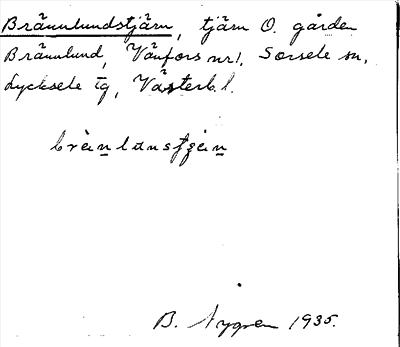 Brännlundstjärn, tjärn O. gården
Brännlund, Vänfors nr 1, Sorsele sn,
Lycksele tg, Västerb. l.
B. Nygren 1935.